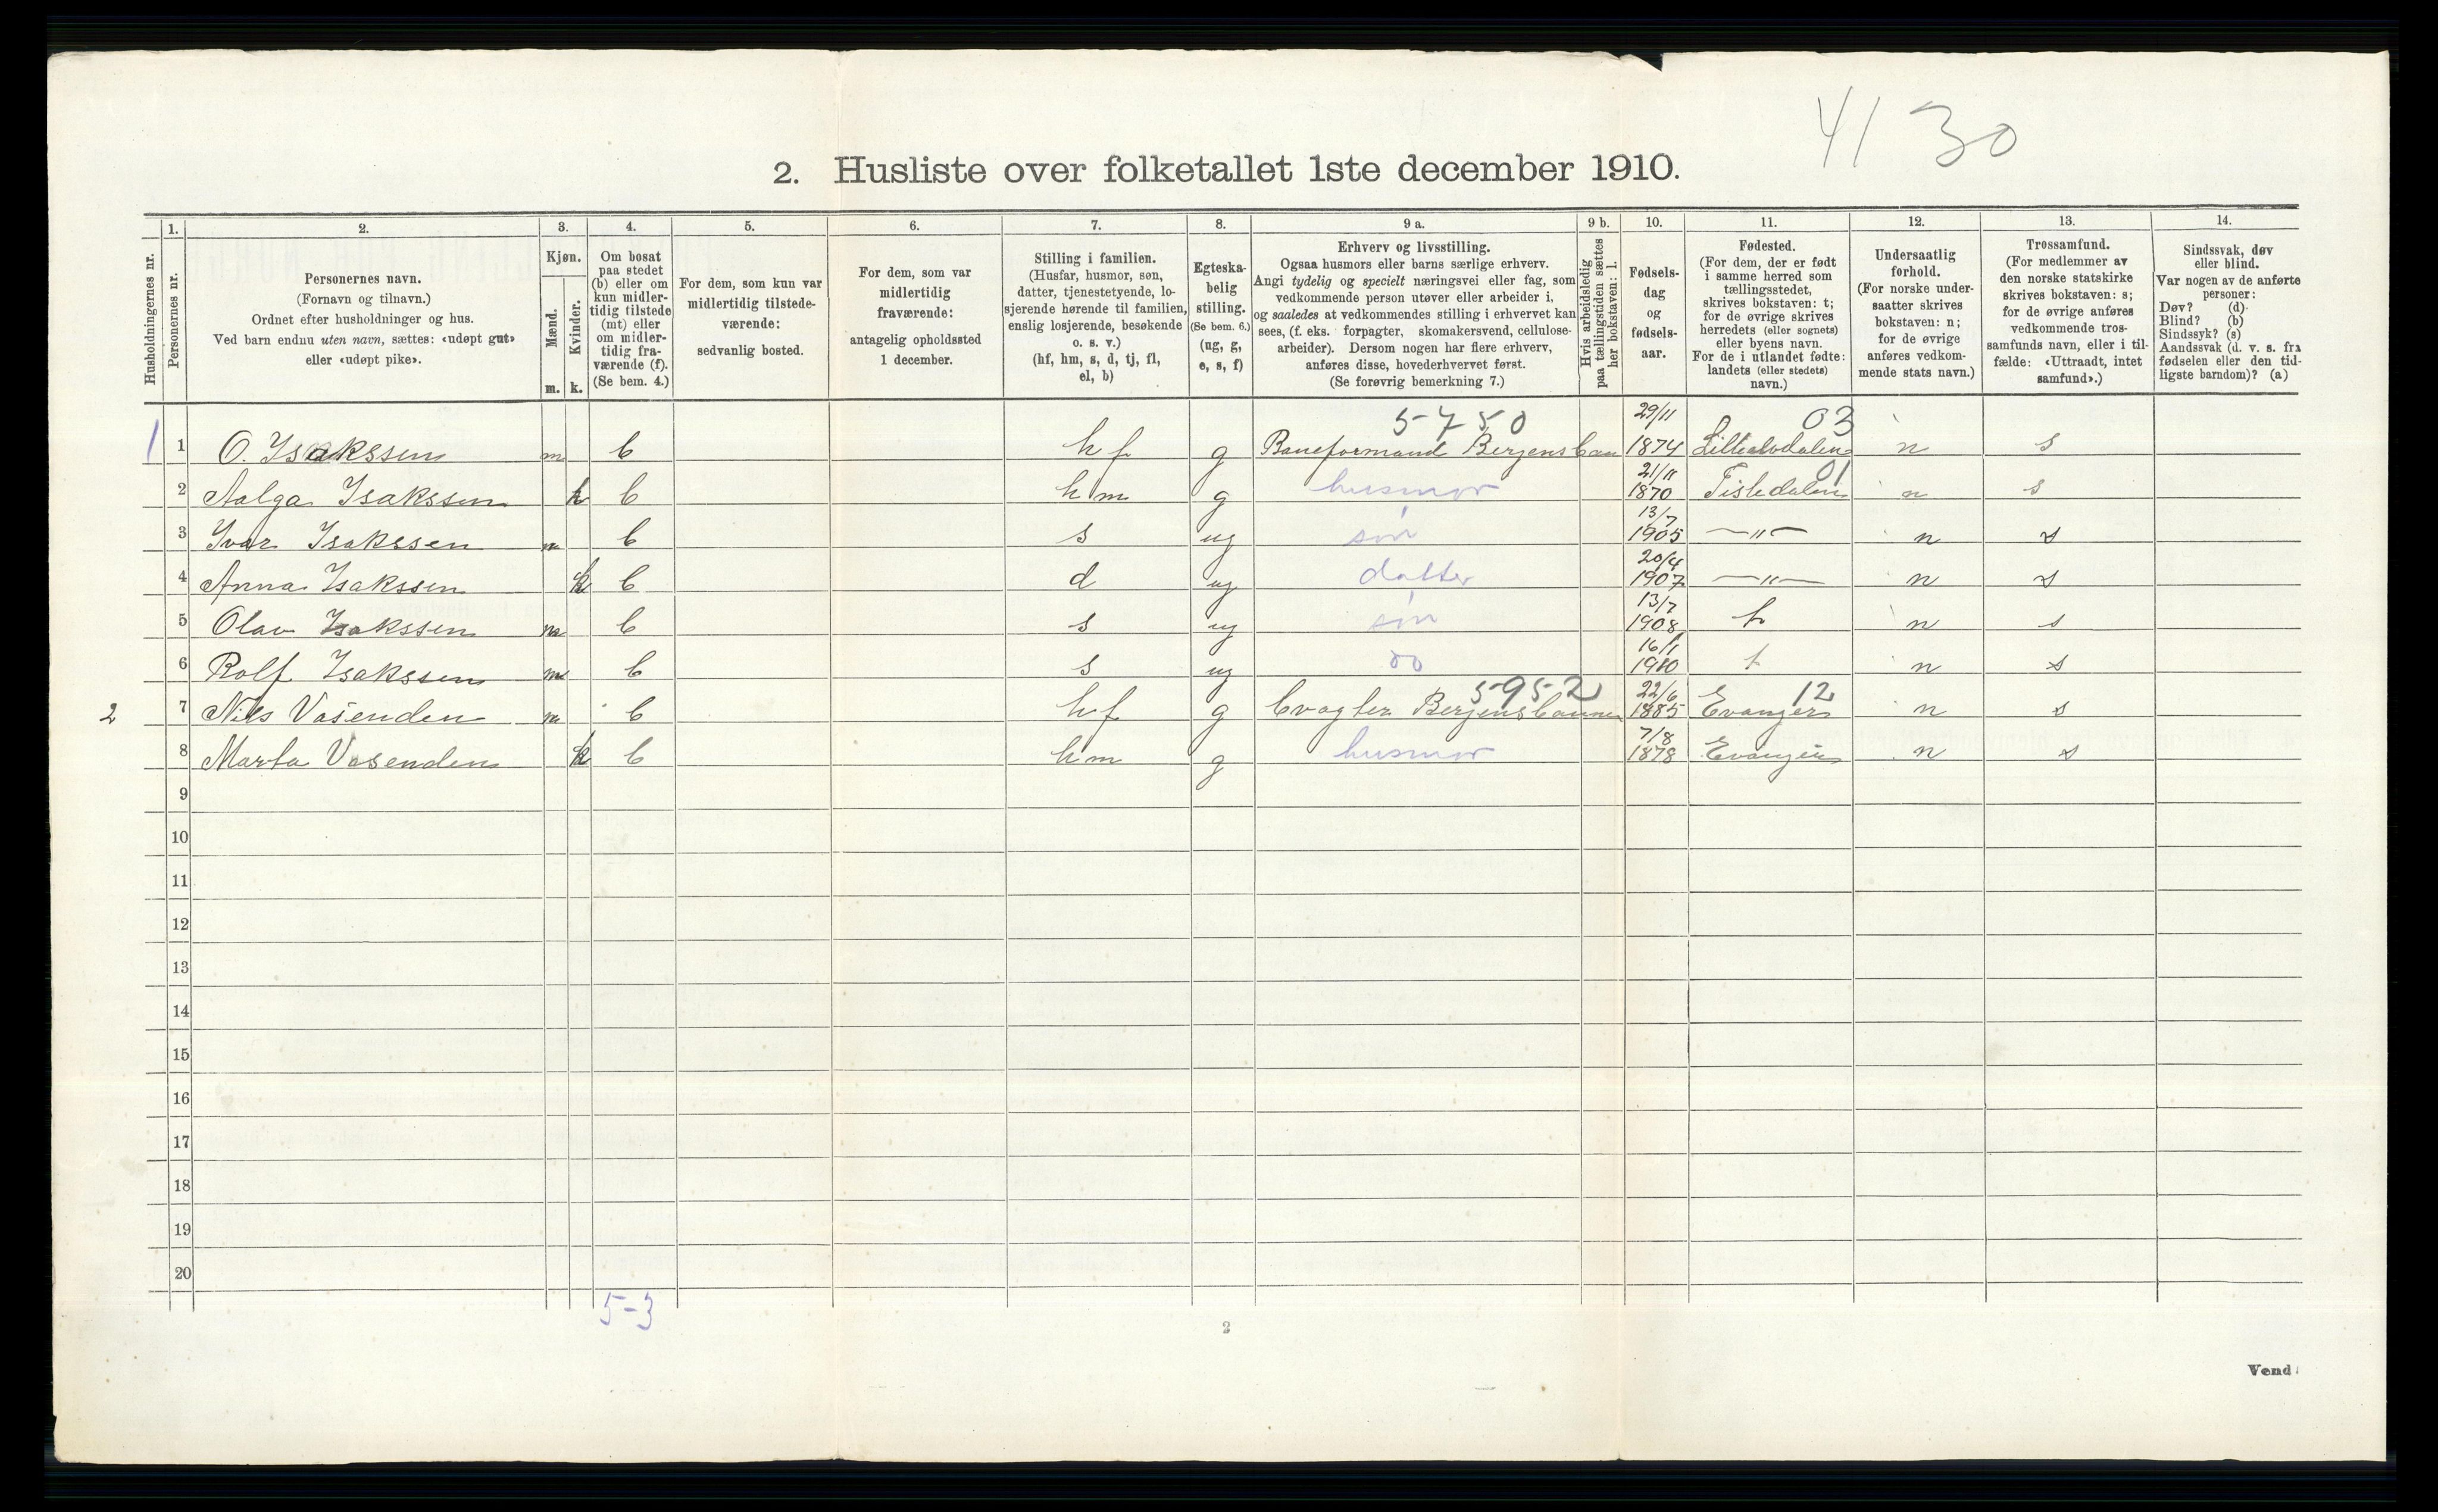 41 30
2. Husliste over folketallet 1ste december 1910.
1. 2. 3. 4. 5. 6. 7. 8. 9 a. 9 b. 10. 11. 12. 13. 14.
Husholdningernes nr.
Personernes nr.
Personernes navn.
(Fornavn og tilnavn.)
Ordnet efter husholdninger og hus.
Ved barn endnu uten navn, sættes: «udøpt gut»
eller «udøpt pike».
Kjøn.
Mænd.
Kvinder.
m. k.
Om bosat
paa stedet
(b) eller om
kun midler-
tidig tilstede
(mt) eller
om midler-
tidig fra-
værende (f).
(Se bem. 4.)
For dem, som kun var
midlertidig tilstede-
værende:
sedvanlig bosted.
For dem, som var
midlertidig
fraværende:
antagelig opholdssted
1 december.
Stilling i familien.
(Husfar, husmor, søn,
datter, tjenestetyende, lo-
sjerende hørende til familien,
enslig losjerende, besøkende
o. s. v.)
(hf, hm, s, d, tj, fl,
el, b)
Egteska-
belig
stilling.
(Se bem. 6.)
(ug, g,
e, s, f)
Erhverv og livsstilling.
Ogsaa husmors eller barns særlige erhverv.
Angi tydelig og specielt næringsvei eller fag, som
vedkommende person utøver eller arbeider i,
og saaledes at vedkommendes stilling i erhvervet kan
sees, (f. eks. forpagter, skomakersvend, cellulose-
arbeider). Dersom nogen har flere erhverv,
anføres disse, hovederhvervet først.
(Se forøvrig bemerkning 7.)
Hvis arbeidsledig
paa tællingstiden sættes
her bokstaven: l.
Fødsels-
dag
og
fødsels-
aar.
Fødested.
(For dem, der er født
i samme herred som
tællingsstedet,
skrives bokstaven: t;
for de øvrige skrives
herredets (eller sognets)
eller byens navn.
For de i utlandet fødte:
landets (eller stedets)
navn.)
Undersaatlig
forhold.
(For norske under-
saatter skrives
bokstaven: n;
for de øvrige
anføres vedkom-
mende stats navn.)
Trossamfund.
(For medlemmer av
den norske statskirke
skrives bokstaven: s;
for de øvrige anføres
vedkommende tros-
samfunds navn, eller i til-
fælde: «Uttraadt, intet
samfund».)
Sindssvak, døv
eller blind.
Var nogen av de anførte
personer:
Døv? (d)
Blind? (b)
Sindssyk? (s)
Aandssvak (d. v. s. fra
fødselen eller den tid-
ligste barndom)? (a)
5-750 29/11 03
1 1 O. Isakssen m b hf g Baneformand Bergensban 1874 n s
21/11 01
2 Aalga Isakssen k b hm g husmor 1870 Tistedalen n s
13/7
3 Ivar Isakssen m b s ug søn 1905 —"— n s
20/4
4 Anna Isakssen k b d ug datter 1907 —"— n s
13/7
5 Olav Isakssen m b s ug søn 1908 t n s
16/1
6 Rolf Isakssen m b s ug do 1910 t n s
5952 22/6 12
2 7 Nils Vasenden m b hf g Bvogter Bergensbanen 1885 Evanger n s
7/8
8 Marta Vasenden k b hm g husmor 1878 Evanger n s
9
10
11
12
13
14
15
16
17
18
19
20
5-3
2
Vend